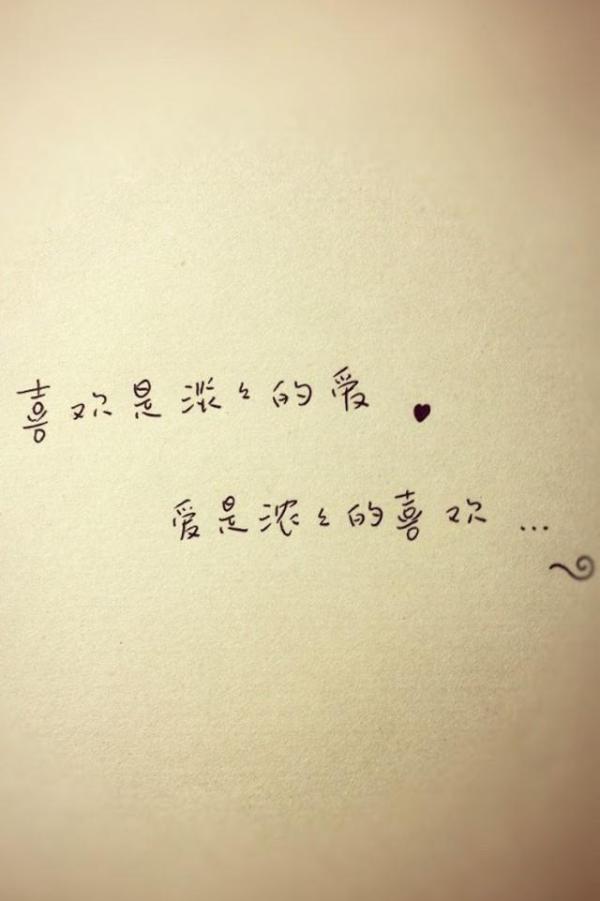 喜欢是淡々的爱
爱是浓々的喜欢...